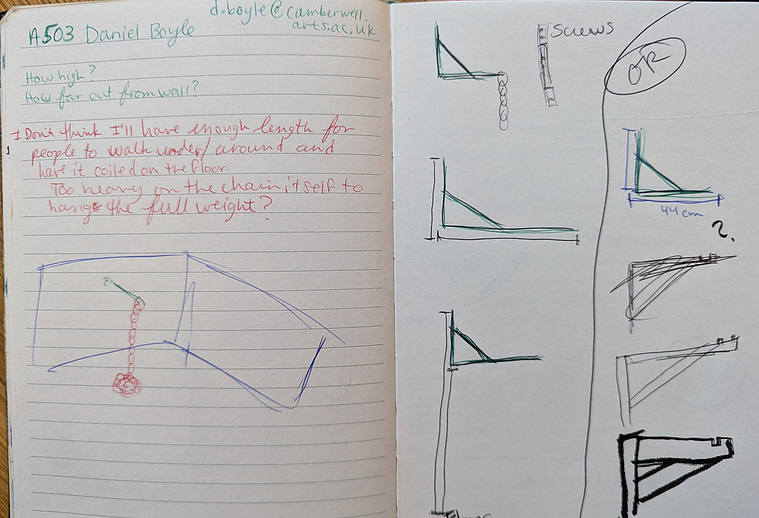 d.boyle@camberwell.
arts.ac.uk
A503 Daniel Boyle
How high?
How far out from wall?
I Don't think I'll have enough length for
people to walk under/around and
have it coiled on the floor.
Too heavy on the chain itself to
hang the full weight?
Screws
OR
44cm
?